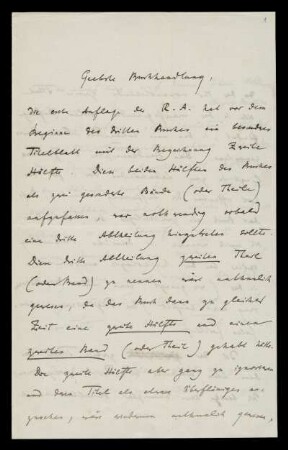 1
Geehrte Buchhandlung,
die erste Auflage der R. A. hat vor dem
Beginn des dritten Buches ein besondres
Titelblatt mit der Bezeichnung Zweite
Hälfte. Diese beiden Hälften des Buches
als zwei gesonderte Bände (oder Theile)
aufzufassen, war nothwendig sobald
eine dritte Abtheilung hinzutreten sollte.
Diese dritte Abtheilung zweiter Theil
(oder Band) zu nennen wäre unthunlich
gewesen, da das Buch dann zu gleicher
Zeit eine zweite Hälfte und einen
zweiten Band (oder Theil) gehabt hätte.
Die zweite Hälfte aber ganz zu ignoriren
und deren Titel als etwas Überflüssiges an-
zusehen, wäre wiederum unthunlich gewesen,